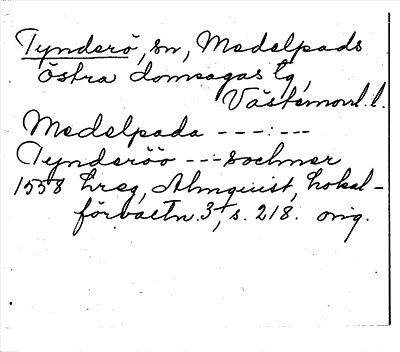 Tynderö, sn, Medelpads
Östra domsagas tg,
Västernorrl. l.
Medelpada ---:---
Tynderöö --- sochner
1558 hreg, Almquist, Lokal-
förvaltn. 3, s. 218. orig.